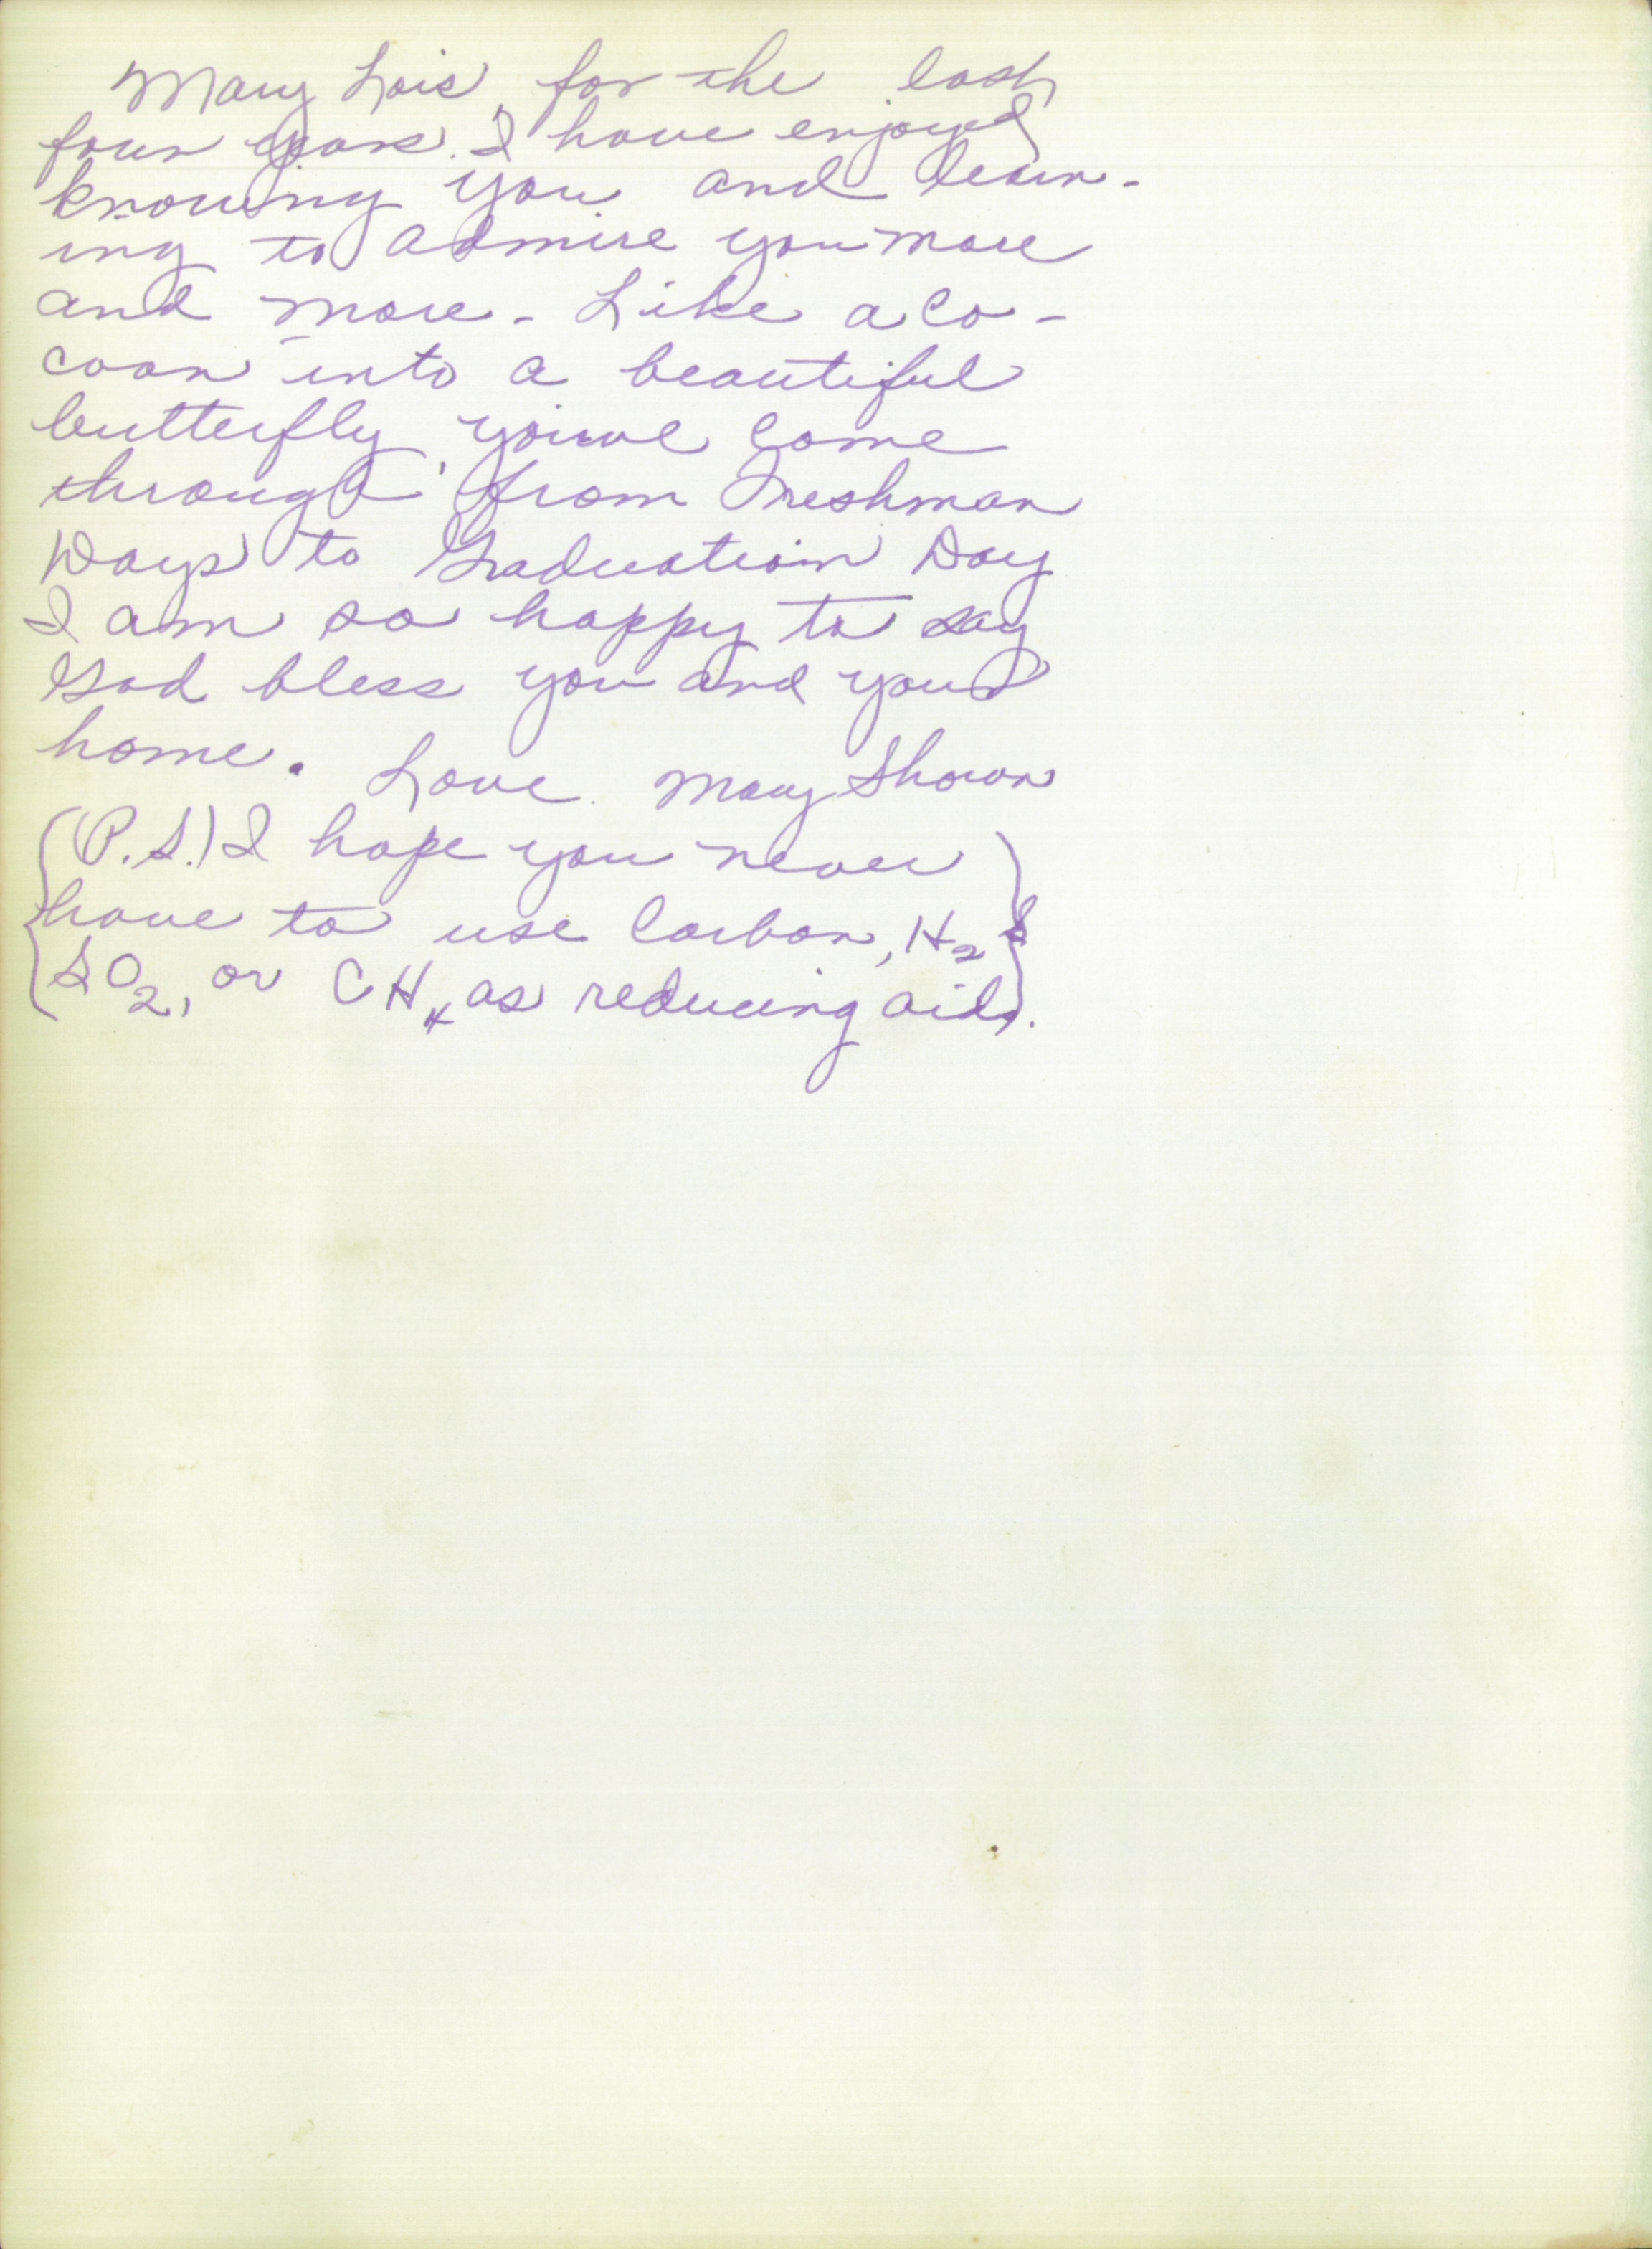 Mary Lois, for the last
four years I have enjoyed
knowing you and learn-
ing to admire you more
and more - Like a co-
coon into a beautiful
butterfly, you've come
through from Freshman
Days to Graduation Day
I am so happy to say
God bless you and your
home. Love Mary Shown
(P.S.) I hope you never
have to use Carbon, H2S
SO2, or CH4 as reducing aids.